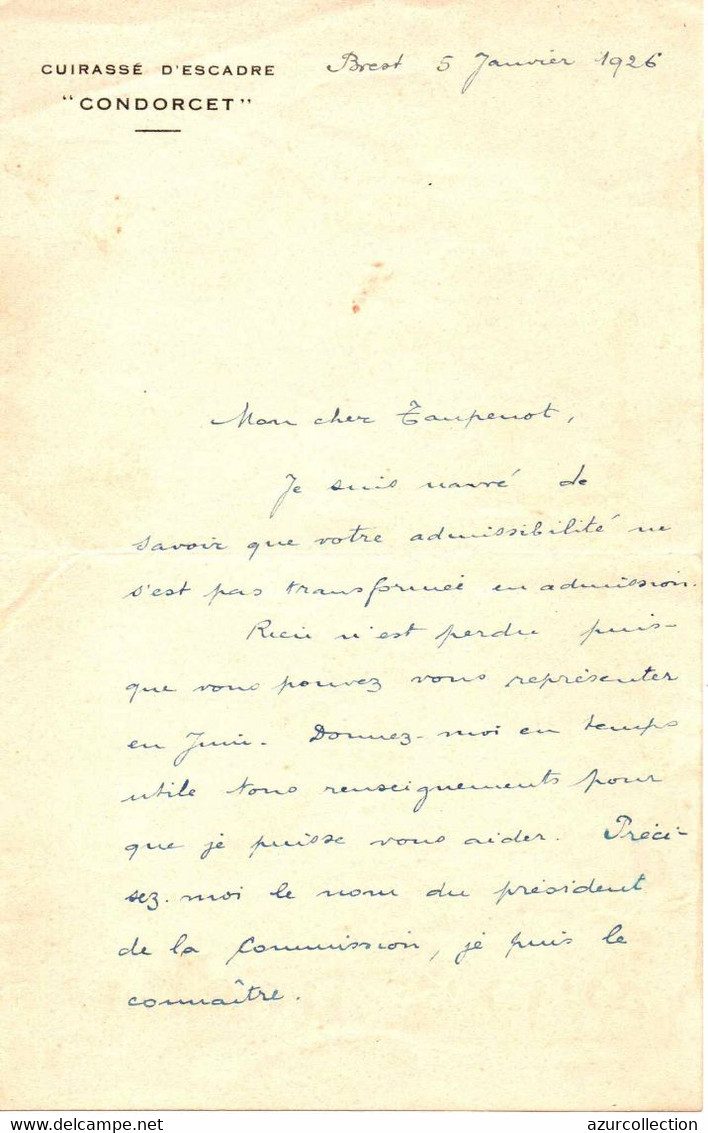 CUIRASSÉ D'ESCADRE
"CONDORCET"
Brest 5 Janvier 1926
Mon cher Taupenot,
Je suis navré de
savoir que votre admissibilité ne
s'est pas transformée en admission.
Rien n'est perdu puis-
que vous pouvez vous représenter
en Juin. Donnez-moi en temps
utile tous renseignements pour
que je puisse vous aider. Préci-
sez-moi le nom du président
de la Commission, je puis le
connaître.
www.delcampe.net
azurcollection